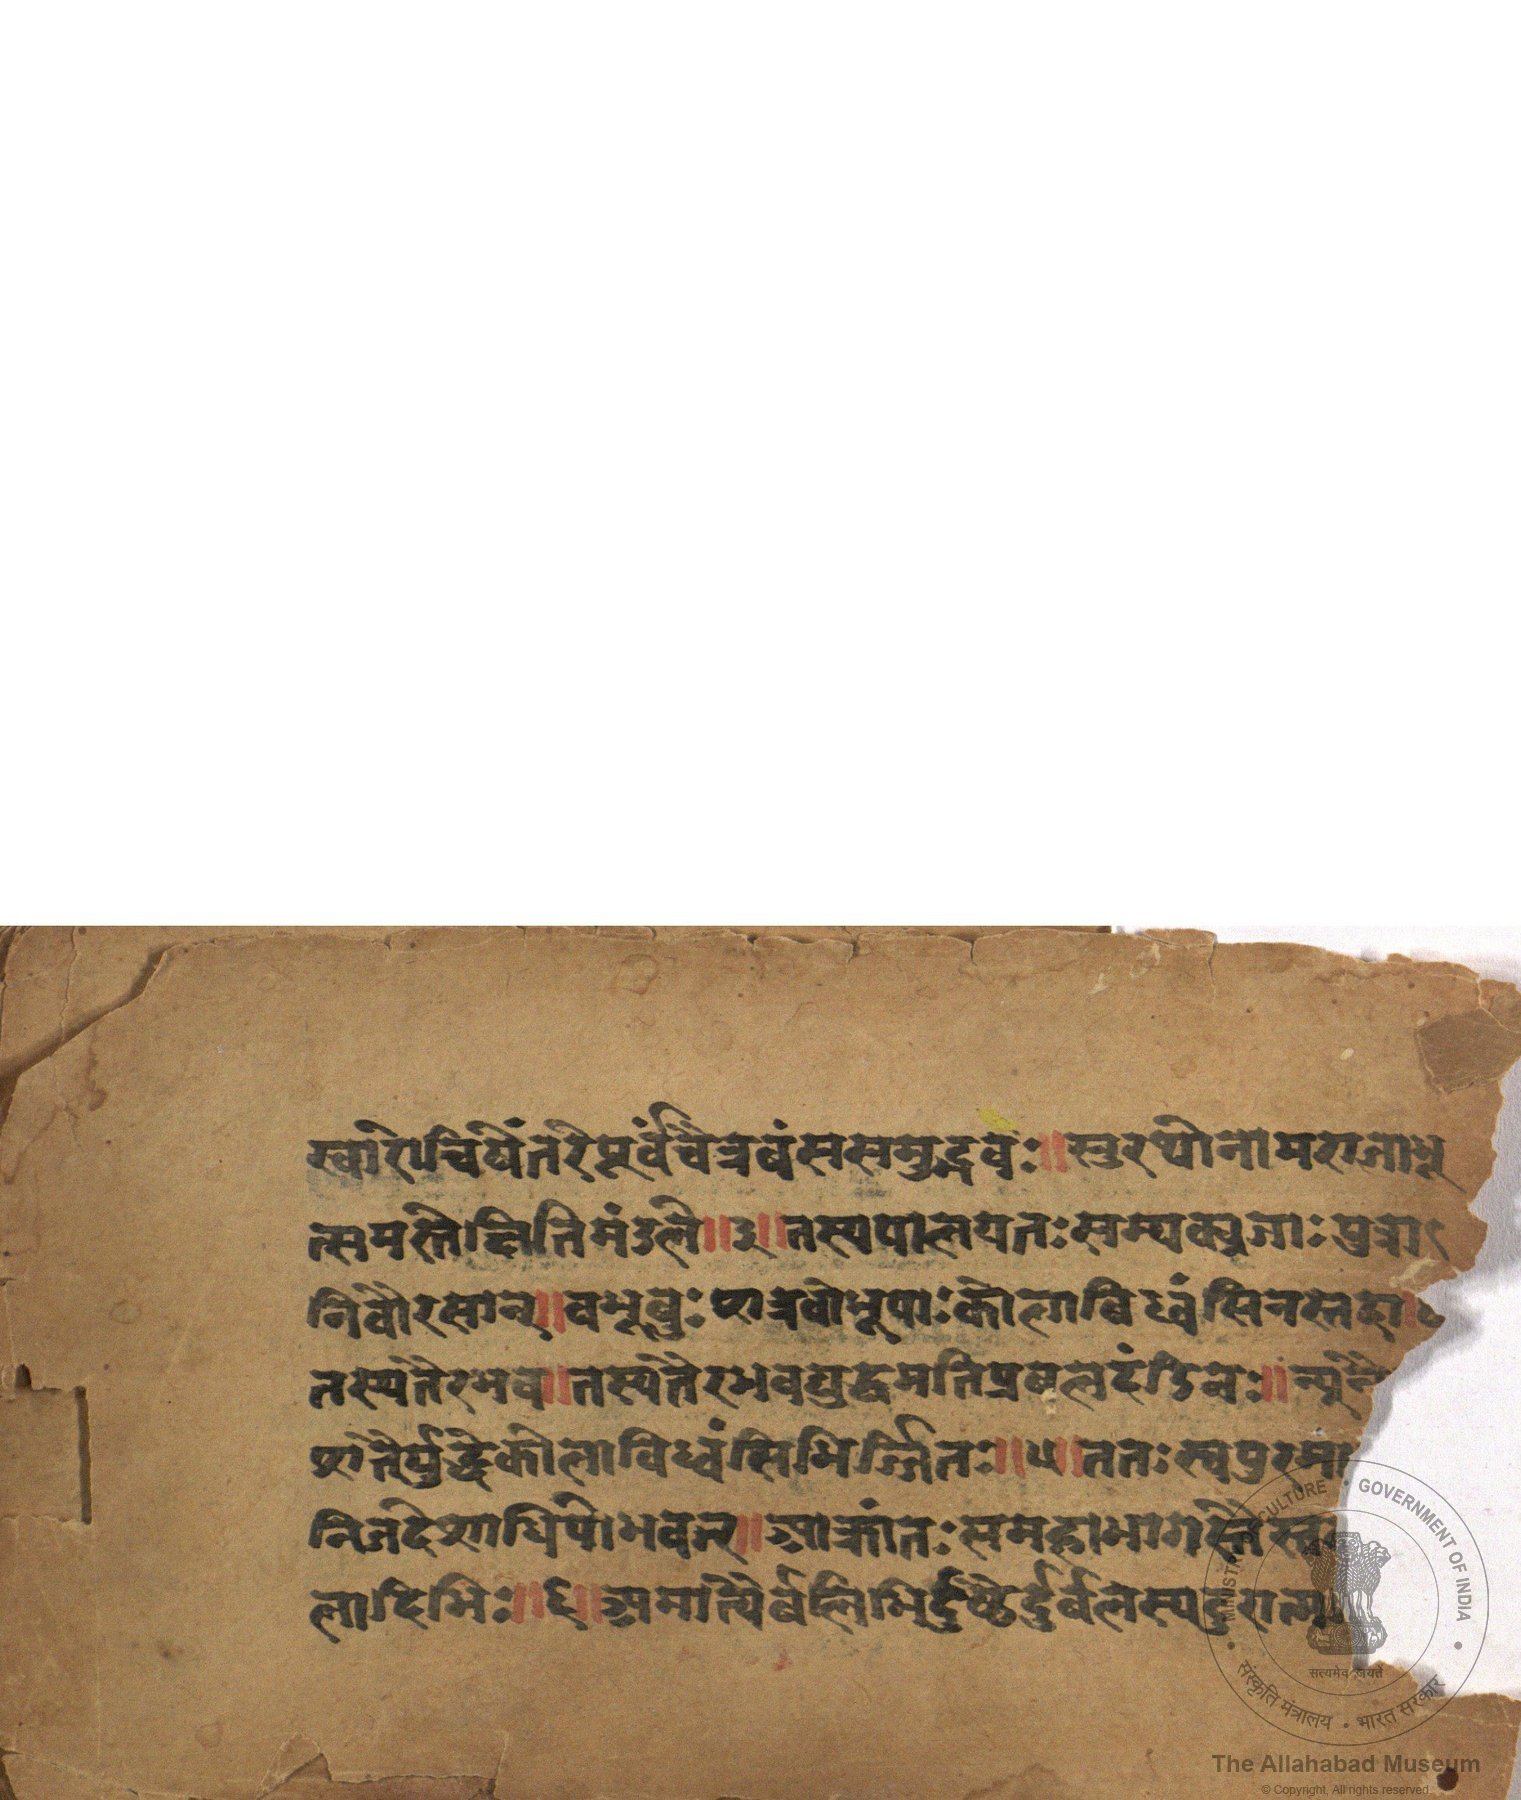 स्वारोचिषेंतरेपूर्वंचैत्रवंससमुद्भवः॥सुरथोनामराजाभू
त्समस्तेक्षितिमंडले॥३॥तस्यपालयतःसम्यक्प्रजाःपुत्रा
निवौरसान्॥बभूवुःशत्रवोभूपाःकोलाविध्वंसिनस्तदा॥
तस्यतैरभव॥तस्यतैरभवद्युद्धमतिप्रबलदंडिनः॥न्यूनै
तैर्युद्धेकोलाविध्वंसिभिर्ज्जितः॥५॥ततःस्वपुरमा
निजदेशाधिपोभवत्॥आक्रांतःसमहाभागस्तैस्त
लादिभिः॥६॥अमात्यैर्बलिभिर्दुष्टैर्दुर्बलस्यदुरात्म
MINISTRY OF CULTURE • GOVERNMENT OF INDIA
सत्यमेव जयते
संस्कृति मंत्रालय • भारत सरकार
The Allahabad Museum
© Copyright, All rights reserved.